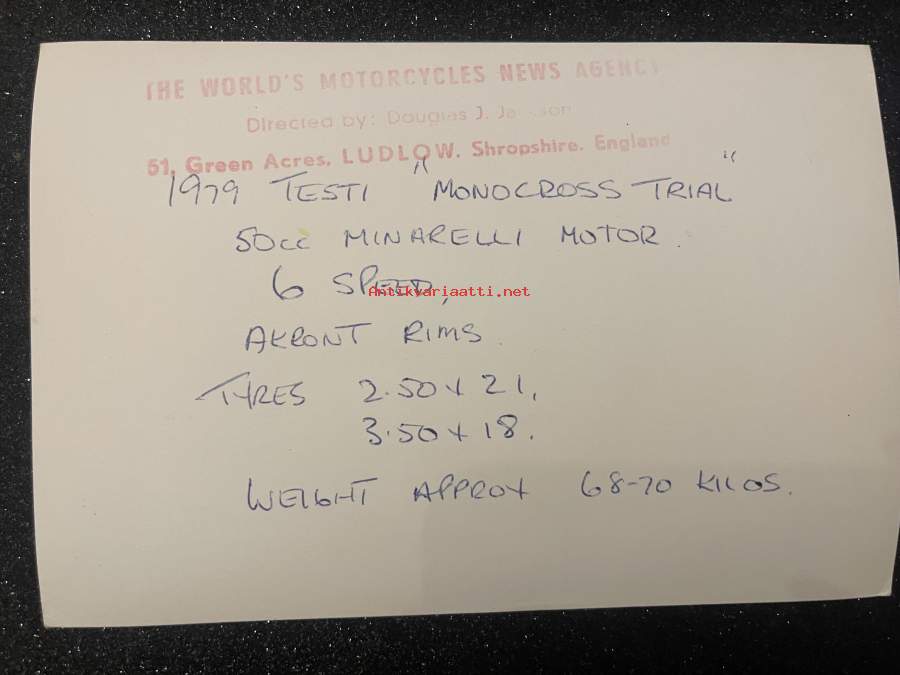 THE WORLD'S MOTORCYCLES NEWS AGENCY
Directed by: Douglas J.
51, Green Acres, LUDLOW. Shropshire. England
1979 TESTI "MONOCROSS TRIAL"
50cc MINARELLI MOTOR.
6 SPEED,
Antikvariaatti.net
AKRONT RIMS.
TYRES 2.50 x 21,
3.50 x 18.
WEIGHT APPROX 68-70 KILOS.